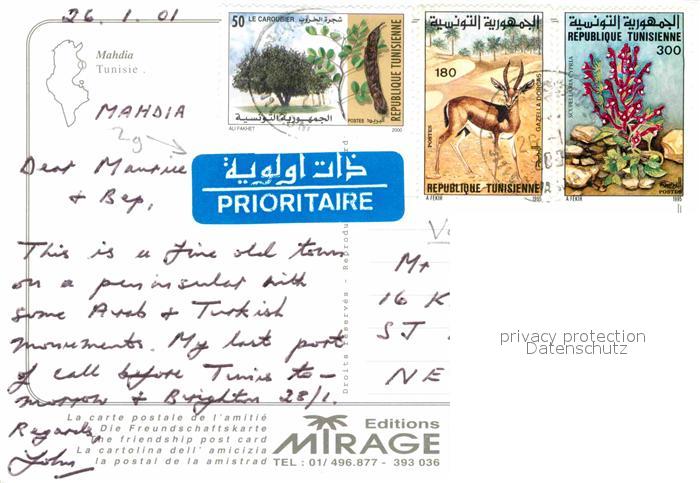 26.1.01
Mahdia
Tunisie.
MAHDIA
Dear Maurice
& Bep,
This is a fine old town
on a peninsular with
some Arab & Turkish
monuments. My last port
of call before Tunis to-
morrow & Brighton 28/1.
Regards,
John
50 LE CAROUBIER شجرة الخروب
REPUBLIQUE TUNISIENNE
الجمهورية التونسية
POSTES البريد
ALI FAKHET 2000
الجمهورية التونسية
180
GAZELLA DORCAS
POSTES
REPUBLIQUE TUNISIENNE
A.FEKIR 1995
الجمهورية التونسية
REPUBLIQUE TUNISIENNE
300
POSTES
A.FEKIR 1995
ذات أولوية
PRIORITAIRE
Droits réservés - Reprodu
Mr
16 K
ST J
NE
privacy protection
Datenschutz
La carte postale de l'amitié
Die Freundschaftskarte
The friendship post card
La cartolina dell' amicizia
la postal de la amistrad
Editions
MIRAGE
TEL : 01/ 496.877 - 393 036